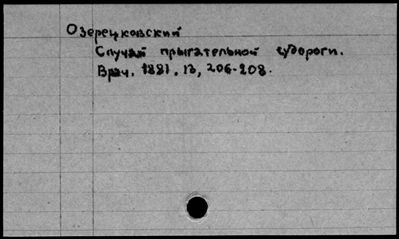 Озерецковский
Случай прыгательной судороги.
Врач. 1881, 13, 206-208.